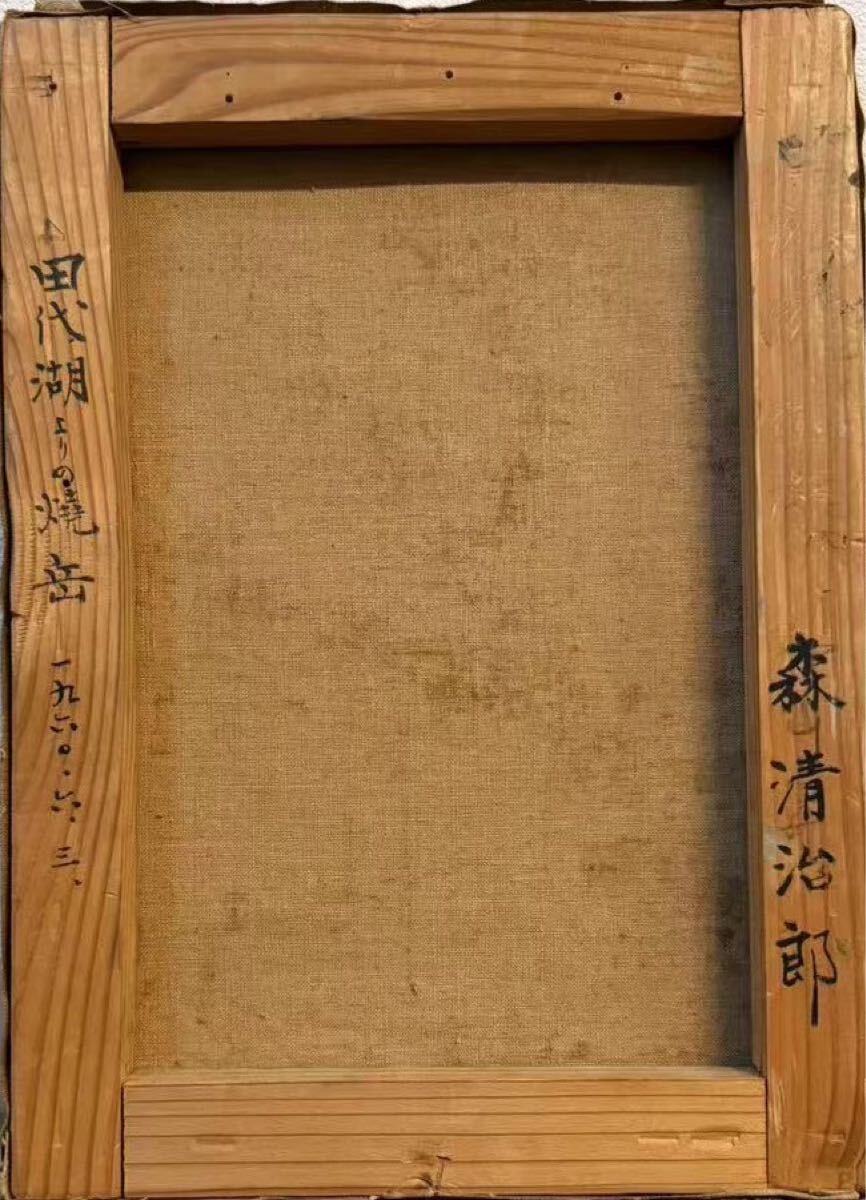 森清治郎
田代湖よりの燒岳 一九六〇・六・三、